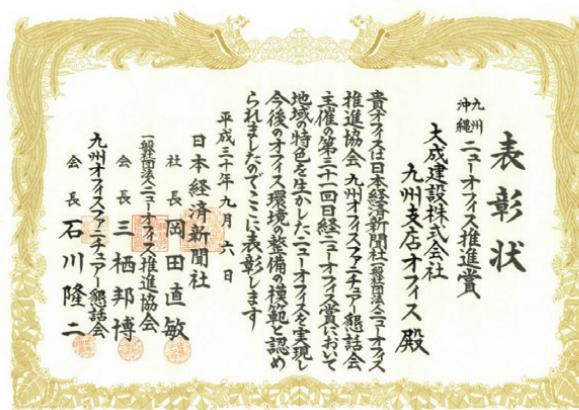 表彰状
九州
沖縄 ニューオフィス推進賞
大成建設株式会社
九州支店オフィス 殿
貴オフィスは日本経済新聞社 一般社団法人ニューオフィス
推進協会 九州オフィスファニチュアー懇話会
主催の第三十一回日経ニューオフィス賞において
地域の特色を生かしたニューオフィスを実現し
今後のオフィス環境の整備の模範と認め
られましたのでここに表彰します
平成三十年九月六日
日本経済新聞社
社長 岡田直敏
一般社団法人ニューオフィス推進協会
会長 三栖邦博
九州オフィスファニチュアー懇話会
会長 石川隆二